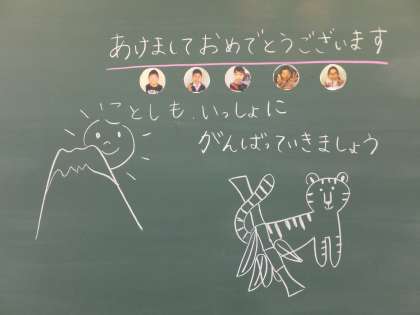 あけましておめでとうございます
ことしも、いっしょに
がんばっていきましょう